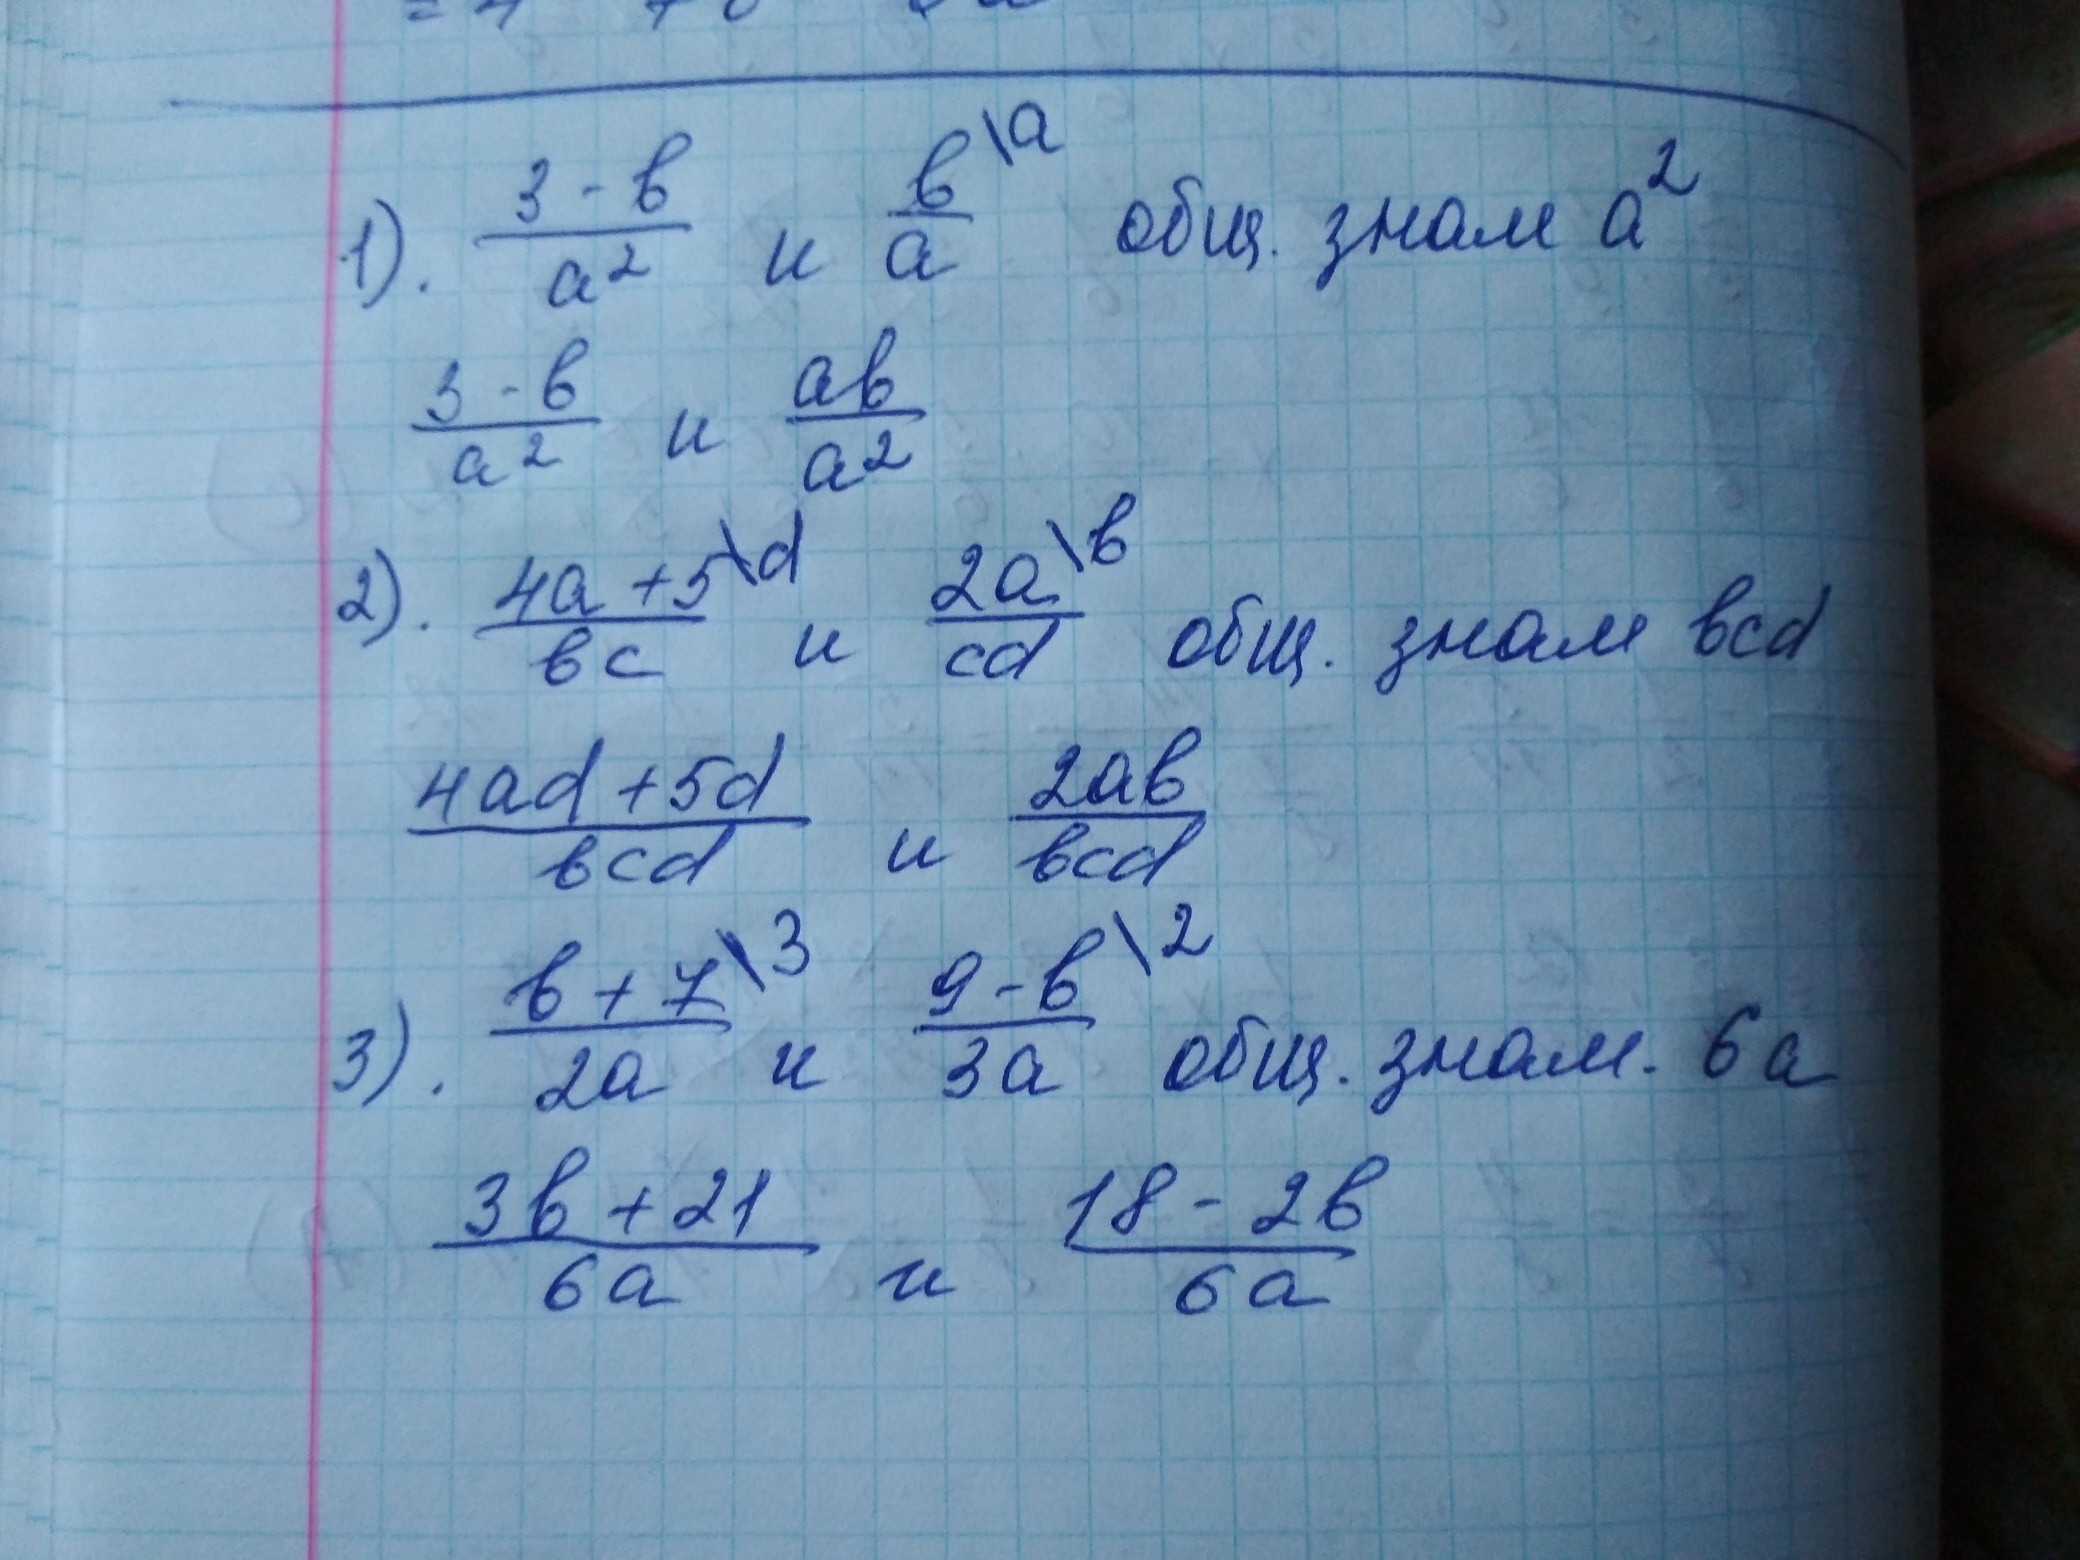 1). (3 - в)/a² и в/a \a общ. знам a²
(3 - в)/a² и aв/a²
2). (4a + 5)/вc \d и 2a/cd \в общ. знам вcd
(4ad + 5d)/вcd и 2aв/вcd
3). (в + 7)/2a \3 и (9 - в)/3a \2 общ. знам. 6a
(3в + 21)/6a и (18 - 2в)/6a